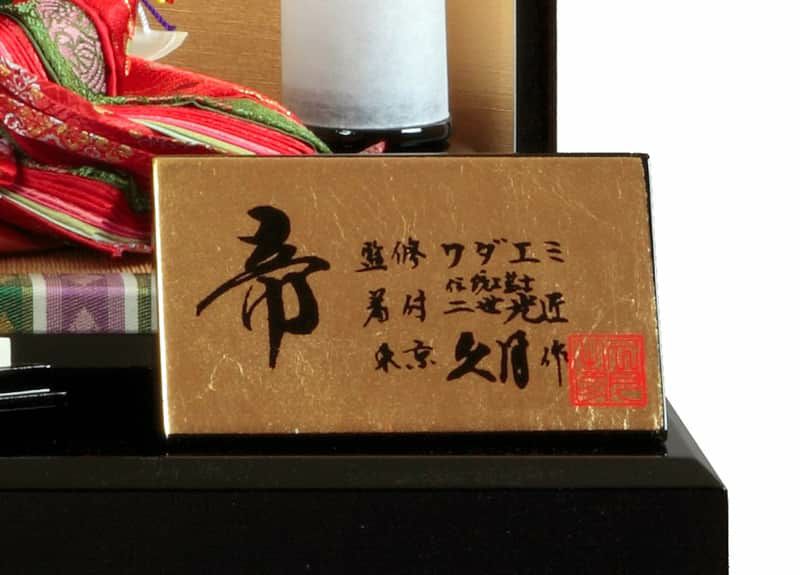 帝
監修 ワダエミ
伝統工芸士
着付 二世光匠
東京 久月 作